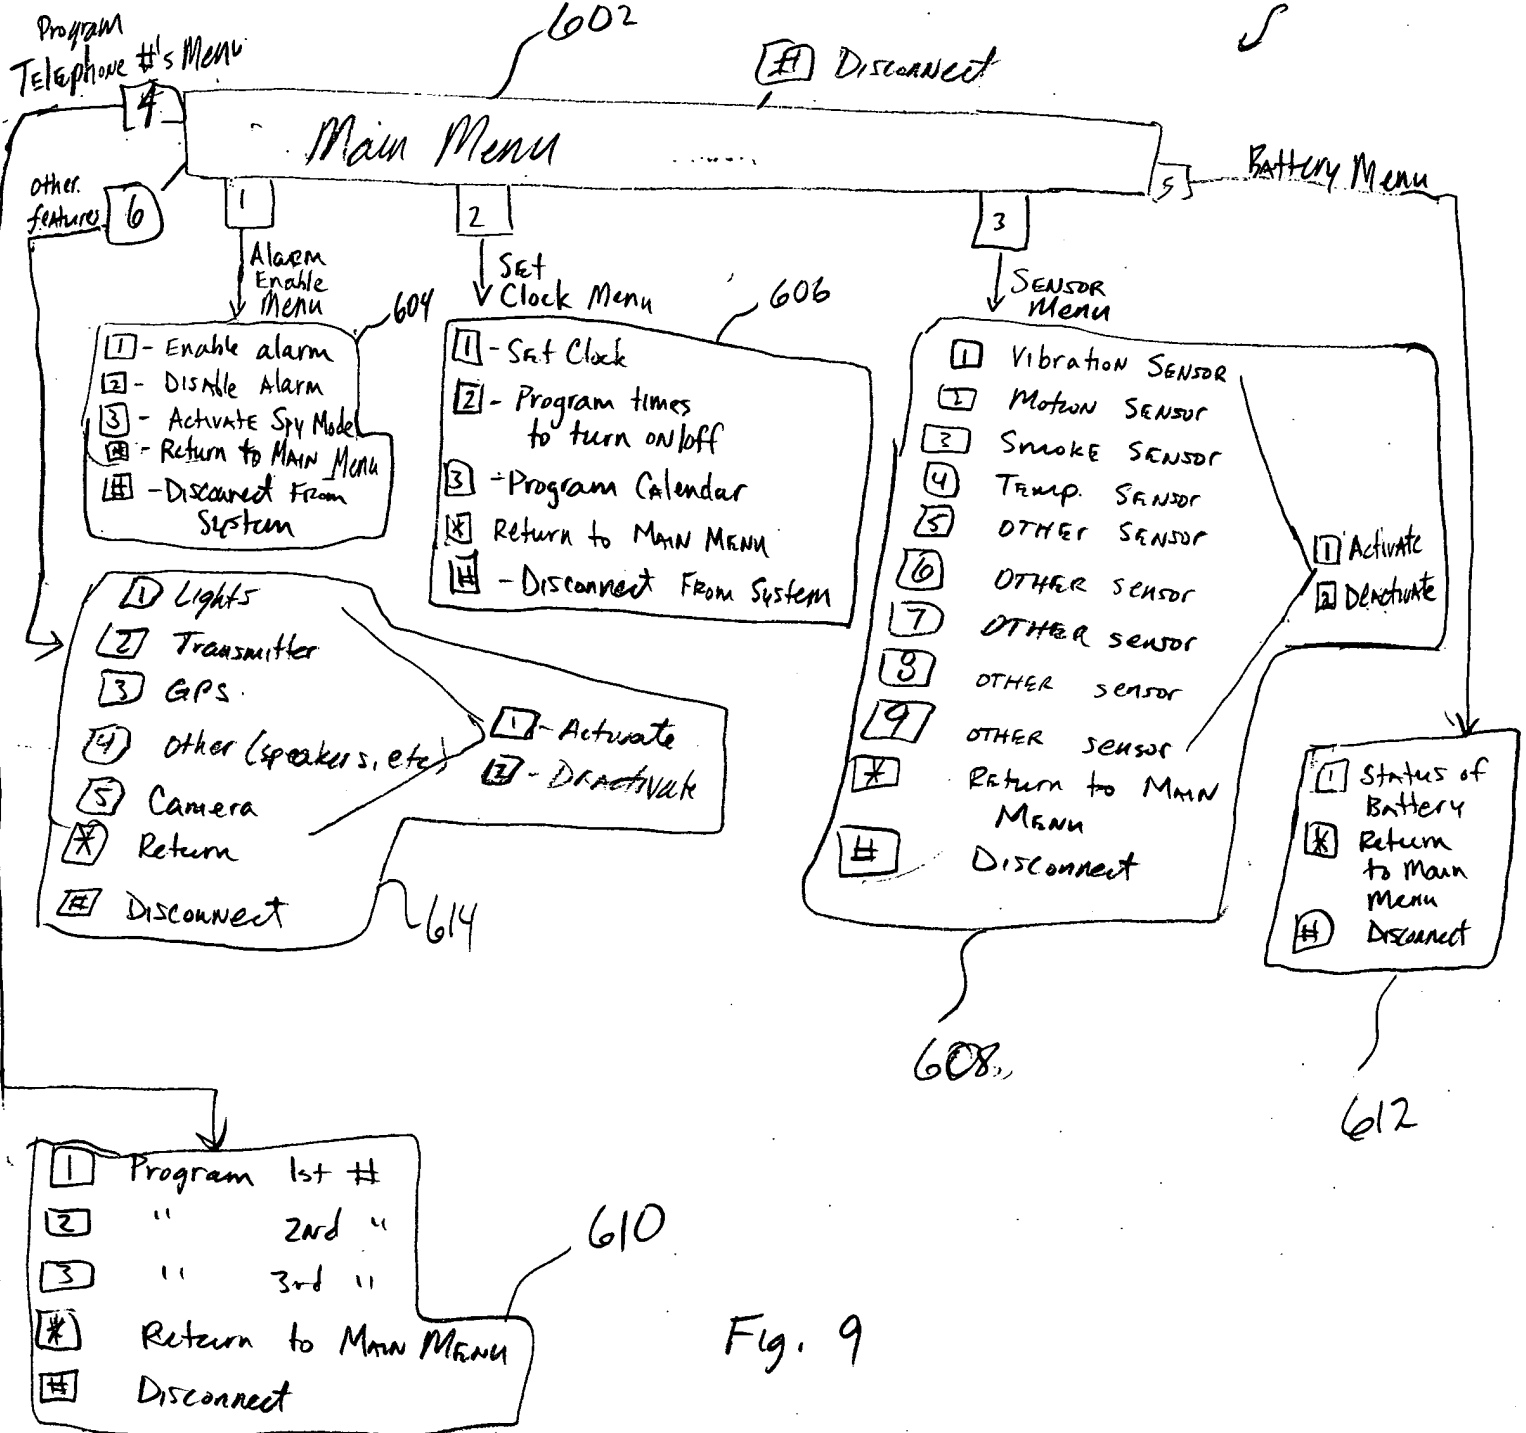 602
Program
Telephone #'s Menu
# Disconnect
4
Main Menu
Battery Menu
5
other
features
6
1
2
3
Alarm
Enable
Menu
Set
Clock Menu
Sensor
Menu
604
1 - Enable alarm
2 - Disable Alarm
3 - Activate Spy Mode
* - Return to Main Menu
# - Disconnect From
System
606
1 - Set Clock
2 - Program times
to turn on/off
3 - Program Calendar
* Return to Main Menu
# - Disconnect From System
1 Vibration Sensor
2 Motion Sensor
3 Smoke Sensor
4 Temp. Sensor
5 Other Sensor
6 Other sensor
7 Other sensor
8 Other sensor
9 Other sensor
* Return to Main
Menu
# Disconnect
1 Activate
2 Deactivate
608
1 Lights
2 Transmitter
3 GPS
4 Other (speakers, etc)
5 Camera
* Return
# Disconnect
1 - Activate
2 - Deactivate
614
1 Status of
Battery
* Return
to Main
Menu
# Disconnect
612
1 Program 1st #
2 " 2nd "
3 " 3rd "
* Return to Main Menu
# Disconnect
610
Fig. 9